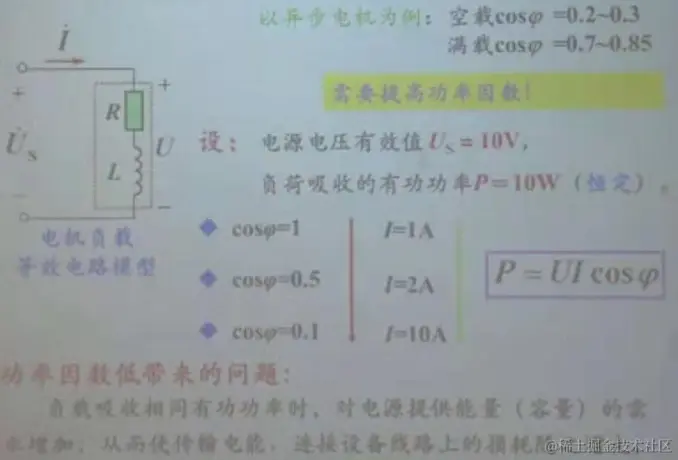 以异步电机为例：空载cosφ =0.2~0.3
满载cosφ =0.7~0.85
İ
需要提高功率因数!
+
U̇s
−
R
L
+
U
−
电机负载
等效电路模型
设： 电源电压有效值 Us = 10V，
负荷吸收的有功功率P＝10W（恒定）。
◆ cosφ=1 I=1A
◆ cosφ=0.5 I=2A
◆ cosφ=0.1 I=10A
P = UI cosφ
功率因数低带来的问题：
负载吸收相同有功功率时，对电源提供能量（容量）的需
增加；从而使传输电能、连接设备线路上的损耗
@稀土掘金技术社区